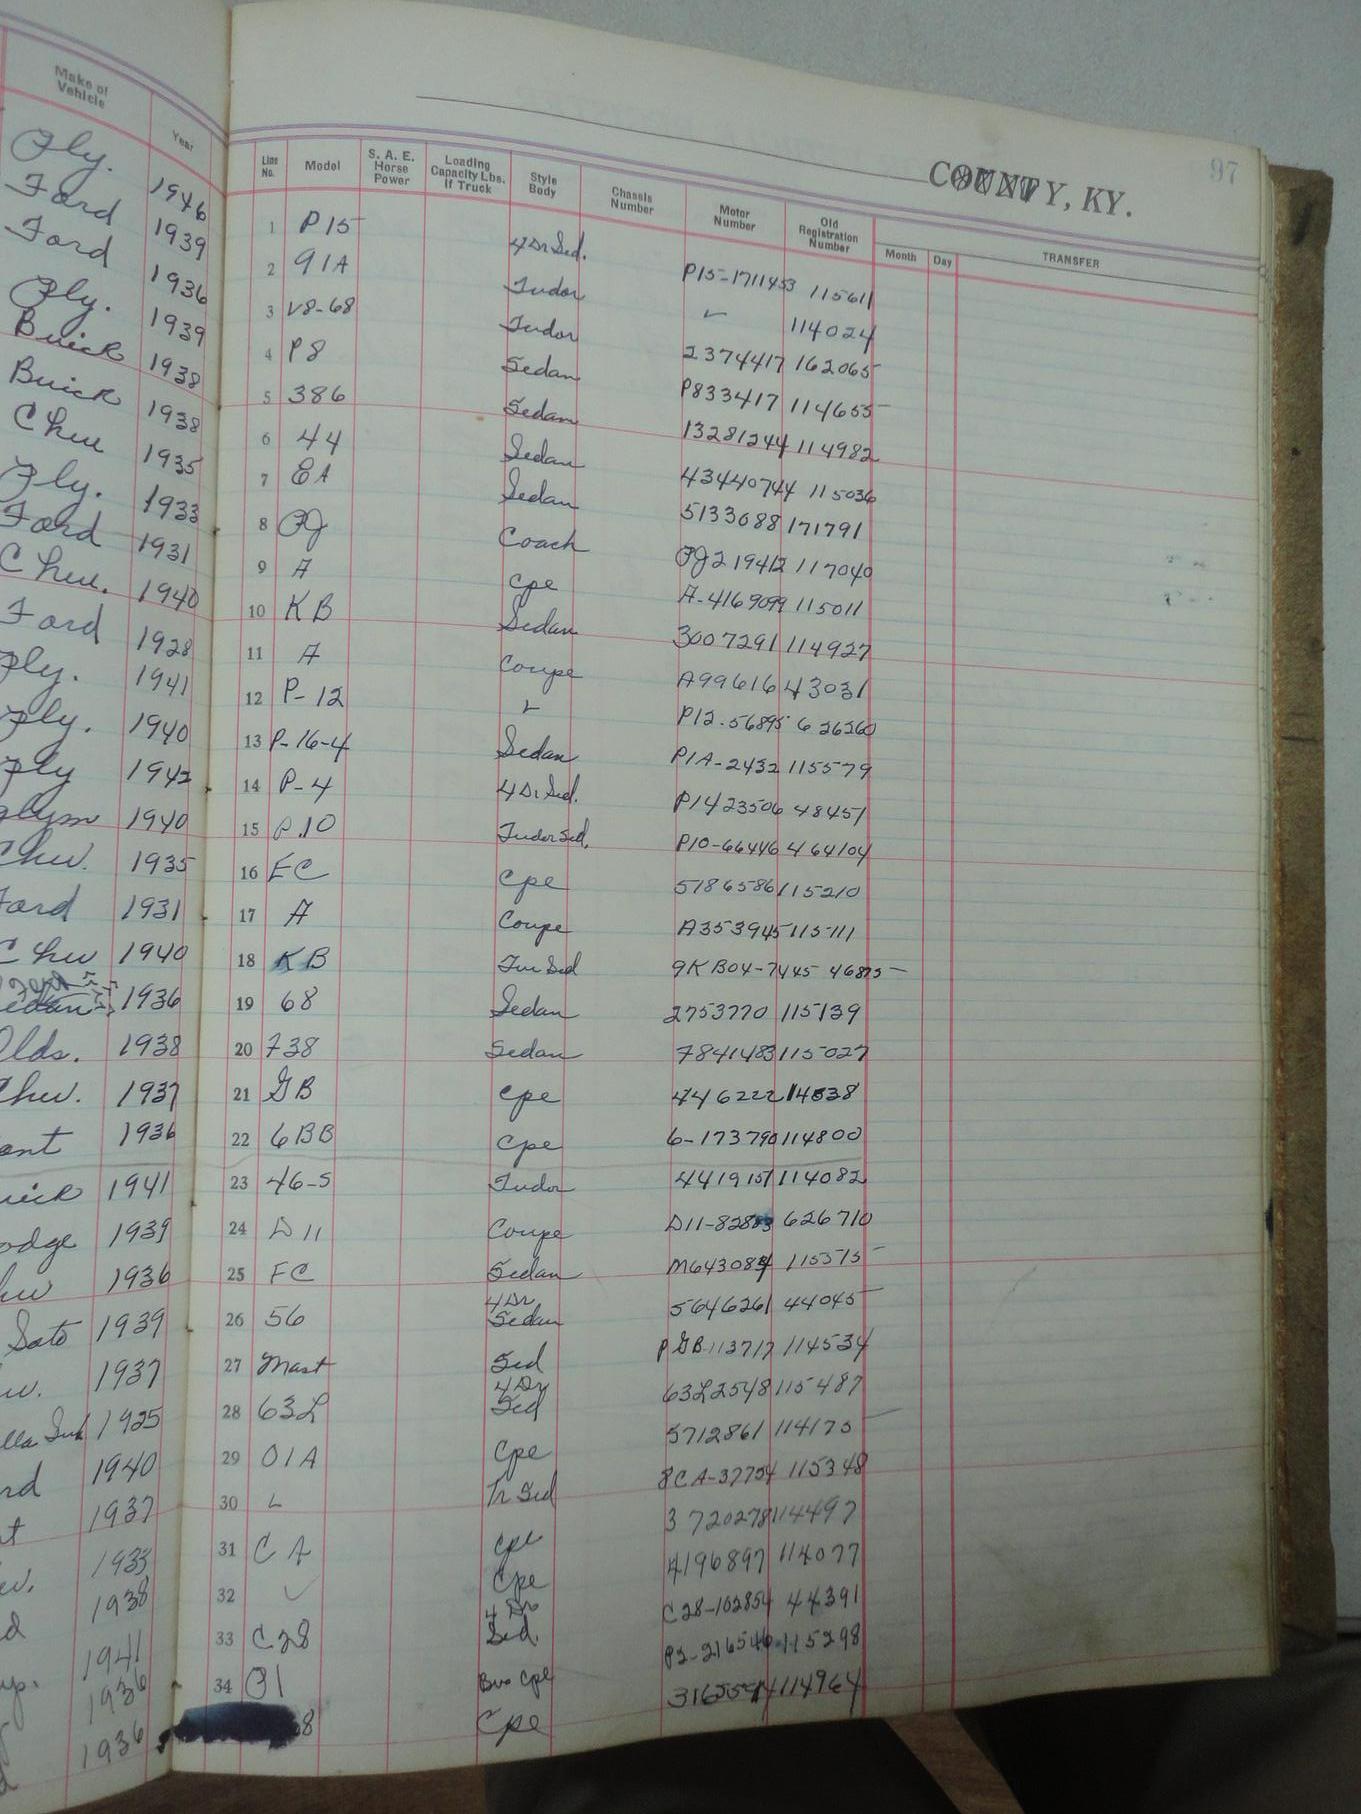 97
COUNTY, KY.
Make of Vehicle
Year
Line No.
Model
S. A. E. Horse Power
Loading Capacity Lbs. If Truck
Style Body
Chassis Number
Motor Number
Old Registration Number
Month
Day
TRANSFER
Ply. 1946 1 P15 4 Dr Sed. P15-1711453 115611
Ford 1939 2 91A Tudor ✓ 114024
Ford 1936 3 V8-68 Tudor 2374417 162065
Ply. 1939 4 P8 Sedan P833417 114655
Buick 1938 5 386 Sedan 13281244 114982
Buick 1938 6 44 Sedan 43440744 115036
Chev 1935 7 EA Sedan 5133688 171791
Ply. 1933 8 PJ Coach PJ219412 117040
Ford 1931 9 A Cpe A-4169099 115011
Chev. 1940 10 KB Sedan 3007291 114927
Ford 1928 11 A Coupe A99616 43031
Ply. 1941 12 P-12 ✓ P12-56895 626260
Ply. 1940 13 P-16-4 Sedan P1A-2432 115579
Ply 1942 14 P-4 4 Dr Sed. P1423506 48451
1940 15 P.10 Tudor Sed. P10-66446 464104
Chev. 1935 16 EC Cpe 5186586 115210
Ford 1931 17 A Coupe A353945 115111
Chev 1940 18 KB Sed 9KB04-7445
Sedan 1936 19 68 Sedan 2753770 115139
Olds. 1938 20 F38 Sedan 7841483 115027
Chev. 1937 21 GB Cpe 446222
ont 1936 22 6BB Cpe 6-173790 114800
uick 1941 23 46-S Tudor 4419157 114082
odge 1939 24 D11 Coupe 626710
1936 25 FC Sedan 115375
Soto 1939 26 56 4 Dr Sedan 5646261 44045
1937 27 Mast Sed PGB-113717 114534
1925 28 63L 4 Dr Sed 63L2548 115487
rd 1940 29 01A Cpe 5712861 114175
1937 30 Tr Sed 8CA-37754 115348
1933 31 CA Cpe 3720278 114497
1938 32 ✓ Cpe 4196897 114077
1941 33 C28 4 Dr Sed. C28-102854 44391
1936 34 Bus Cpe 115298
1936 8 Cpe 114964